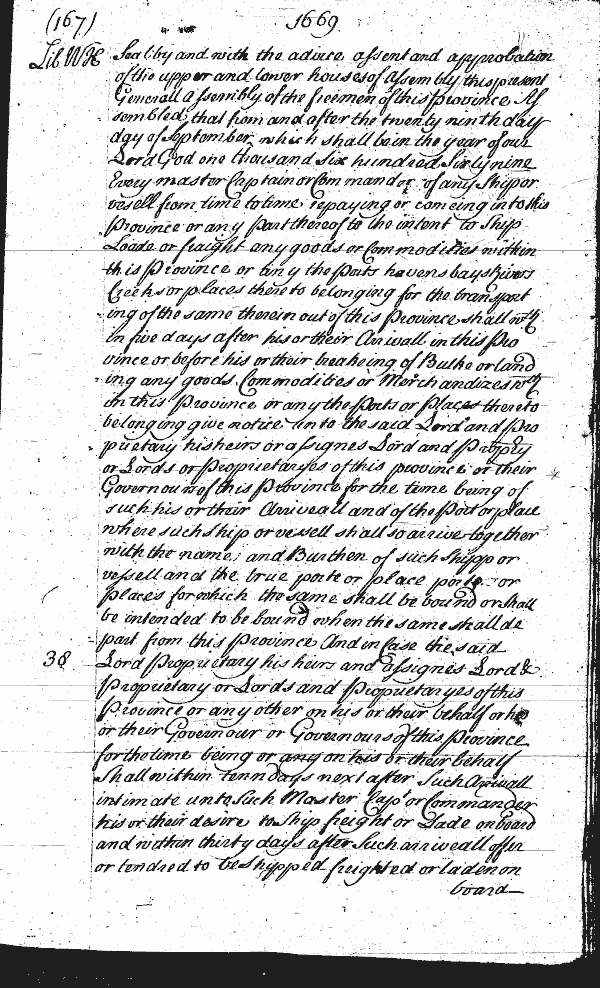 (167) 1669
Lib WH Seal by and with the advice assent and approbation
of the upper and lower houses of Assembly this present
Generall assembly of the freemen of this Province As
sembled, that from and after the twenty ninth day
day of September, which shall be in the year of our
Lord God one thousand Six hundred Sixty nine
Every master Captain or Commander of any Ship or
vesell from time to time repaying or comeing into this
Province or any Part thereof to the intent to Ship
Loade or freight any goods or Commodities within
this Province or any the Ports havens bays Rivers
Creeks or places thereto belonging for the transport
ing of the same therein out of this Province shall wth
in five days after his or their Arrivall in this Pro
vince or before his or their breakeing of Bulke or land
ing any goods Commodities or Merchandizes wth
in this Province or any the Ports or Places thereto
belonging give notice unto the said Lord and Pro
prietary his heirs or assignes Lord and Propry
or Lords or Proprietaryes of this province or their
Governours of this Province for the time being of
such his or their Arriveall and of the Port or place
where such ship or vessell shall so arrive together
with the name; and Burthen of such Shipp or
vessell and the true porte or place ports or
places for which the same shall be bound or shall
be intended to be bound when the same shall de
part from this Province And in Case the said
38 Lord Proprietary his heirs and assignes Lord &
Proprietary or Lords and Proprietaryes of this
Province or any other on his or their behalf or his
or their Governour or Governours of this Province
for the time being or any on his or their behalf
Shall within tenn days next after Such Arrivall
intimate unto Such Master Capt or Commander
his or their desire to Ship freight or Lade on board
and within thirty days after Such arriveall offer
or tendred to be shipped freighted or laden on
board—